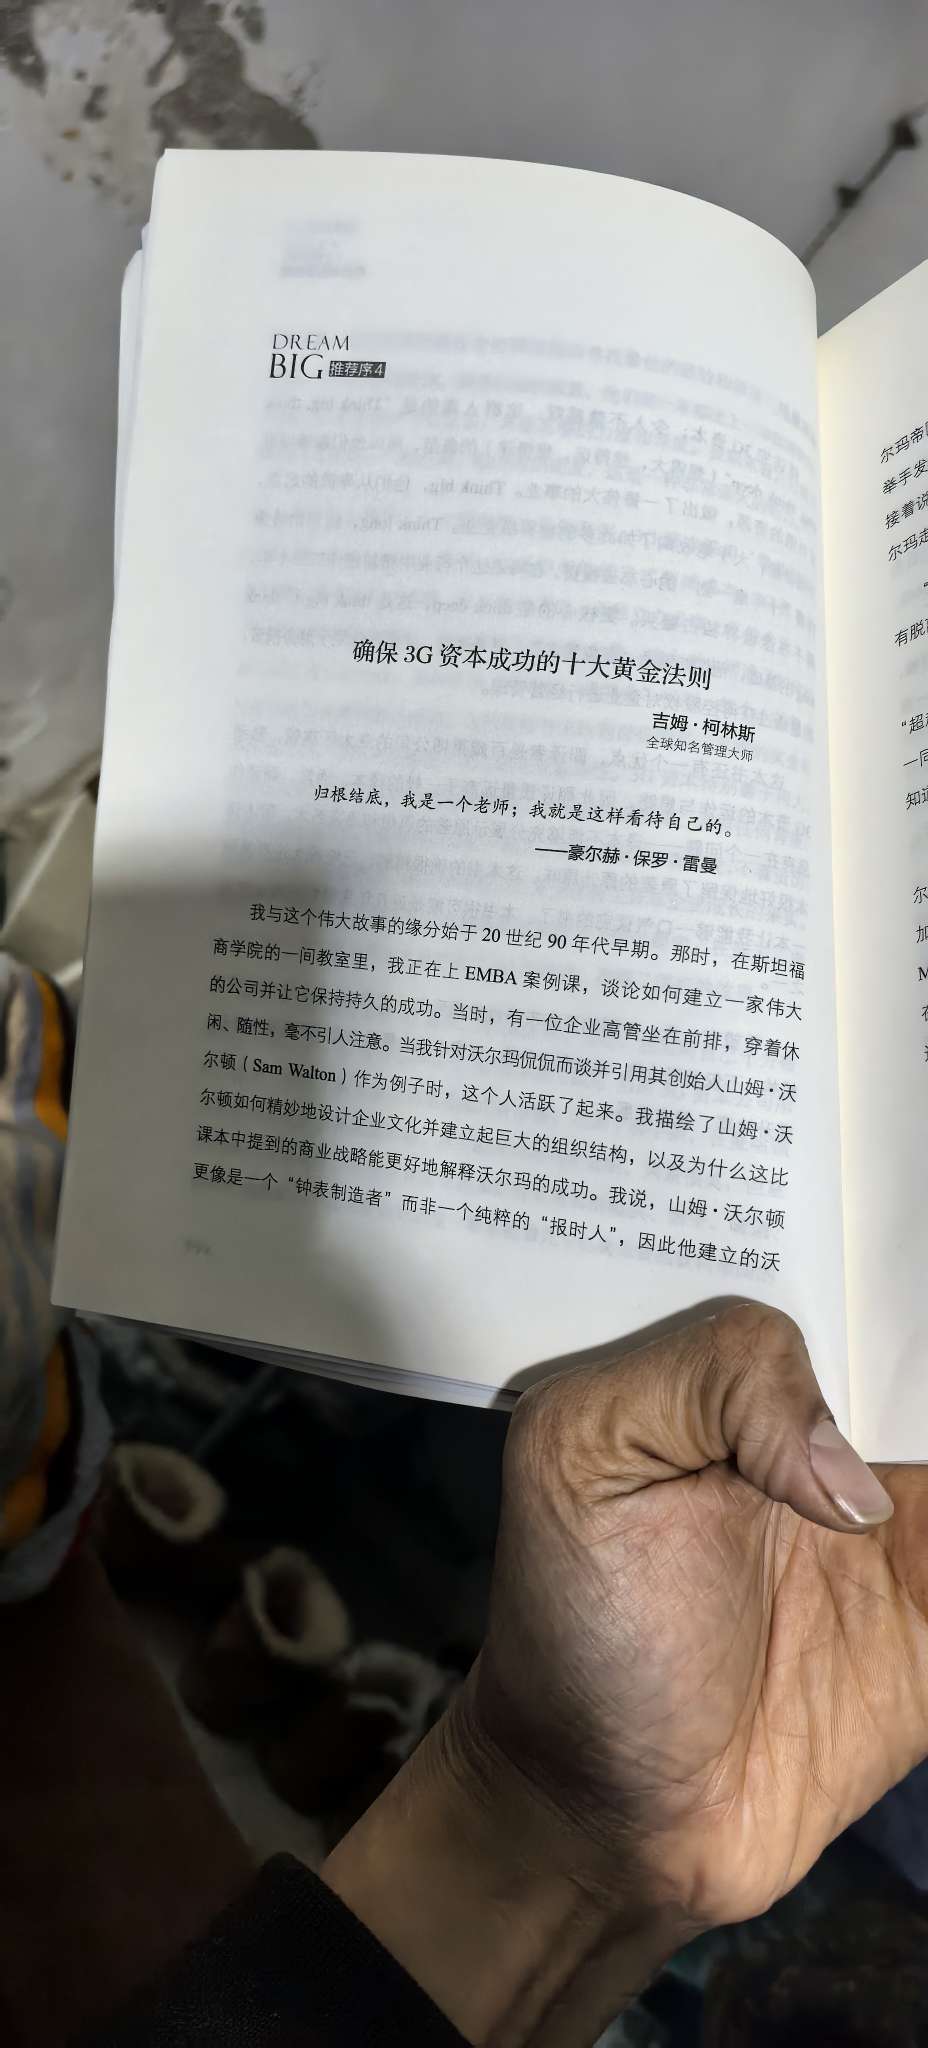 DREAM
BIG 推荐序4
确保 3G 资本成功的十大黄金法则
吉姆·柯林斯
全球知名管理大师
归根结底，我是一个老师；我就是这样看待自己的。
——豪尔赫·保罗·雷曼
我与这个伟大故事的缘分始于 20 世纪 90 年代早期。那时，在斯坦福
商学院的一间教室里，我正在上 EMBA 案例课，谈论如何建立一家伟大
的公司并让它保持持久的成功。当时，有一位企业高管坐在前排，穿着休
闲、随性，毫不引人注意。当我针对沃尔玛侃侃而谈并引用其创始人山姆·沃
尔顿（Sam Walton）作为例子时，这个人活跃了起来。我描绘了山姆·沃
尔顿如何精妙地设计企业文化并建立起巨大的组织结构，以及为什么这比
课本中提到的商业战略能更好地解释沃尔玛的成功。我说，山姆·沃尔顿
更像是一个“钟表制造者”而非一个纯粹的“报时人”，因此他建立的沃
尔玛帝
举手发
接着说
尔玛走
有脱
“超
一同
知道
尔
加
M